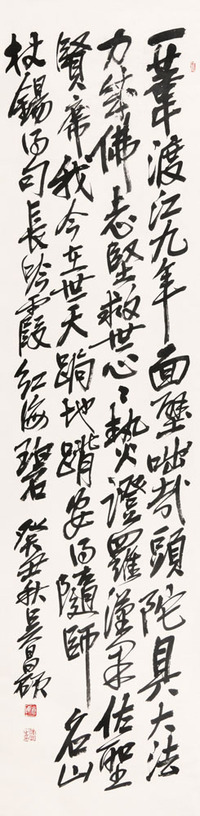 一葦渡江九年面壁咄哉頭陀具大法
力成佛志堅救世心熱證羅漢果佐聖
賢席我今在世天跼地蹐安得隨師名山
杖錫得句長吟霞紅海碧 癸丑秋吳昌碩